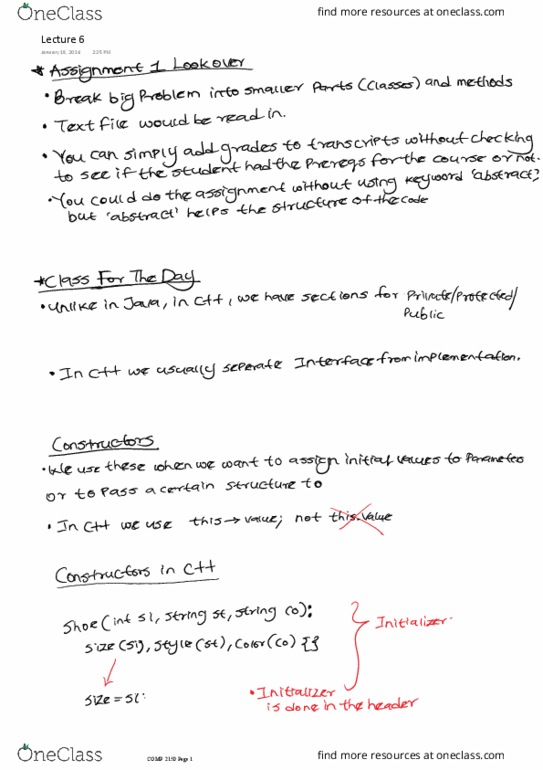 OneClass
find more resources at oneclass.com
Lecture 6
January 18, 2016 2:25 PM
* Assignment 1 Lookover
• Break big Problem into smaller Parts (Classes) and methods
• Text File would be read in.
• You can simply add grades to transcripts without checking
to see if the student had the Prereqs for the course or not.
• You could do the assignment without using keyword 'abstract'?
but 'abstract' helps the structure of the code
* Class For The Day
• Unlike in Java, in C++, we have sections for Private/Protected/
Public
• In C++ we usually seperate Interface from implementation.
Constructors
• We use these when we want to assign initial values to Parameters
or to Pass a certain structure to
• In C++ we use this→value; not this.value
Constructors in C++
Shoe(int si, string st, string co):
Size(si), Style(st), Color(co) {}
Initializer.
size = si.
• Initializer
is done in the header
OneClass
COMP 2150 Page 1
find more resources at oneclass.com